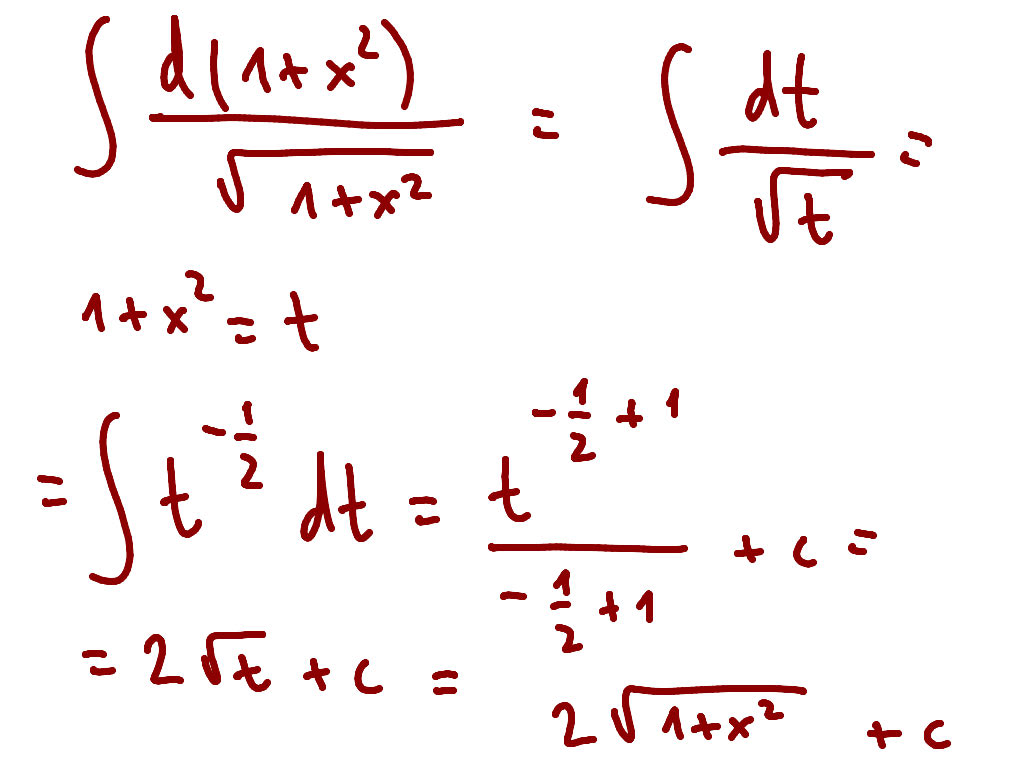 ∫ d(1+x²) / √(1+x²) = ∫ dt / √t =
1+x² = t
= ∫ t^(-1/2) dt = t^(-1/2 + 1) / (-1/2 + 1) + c =
= 2√t + c = 2√(1+x²) + c